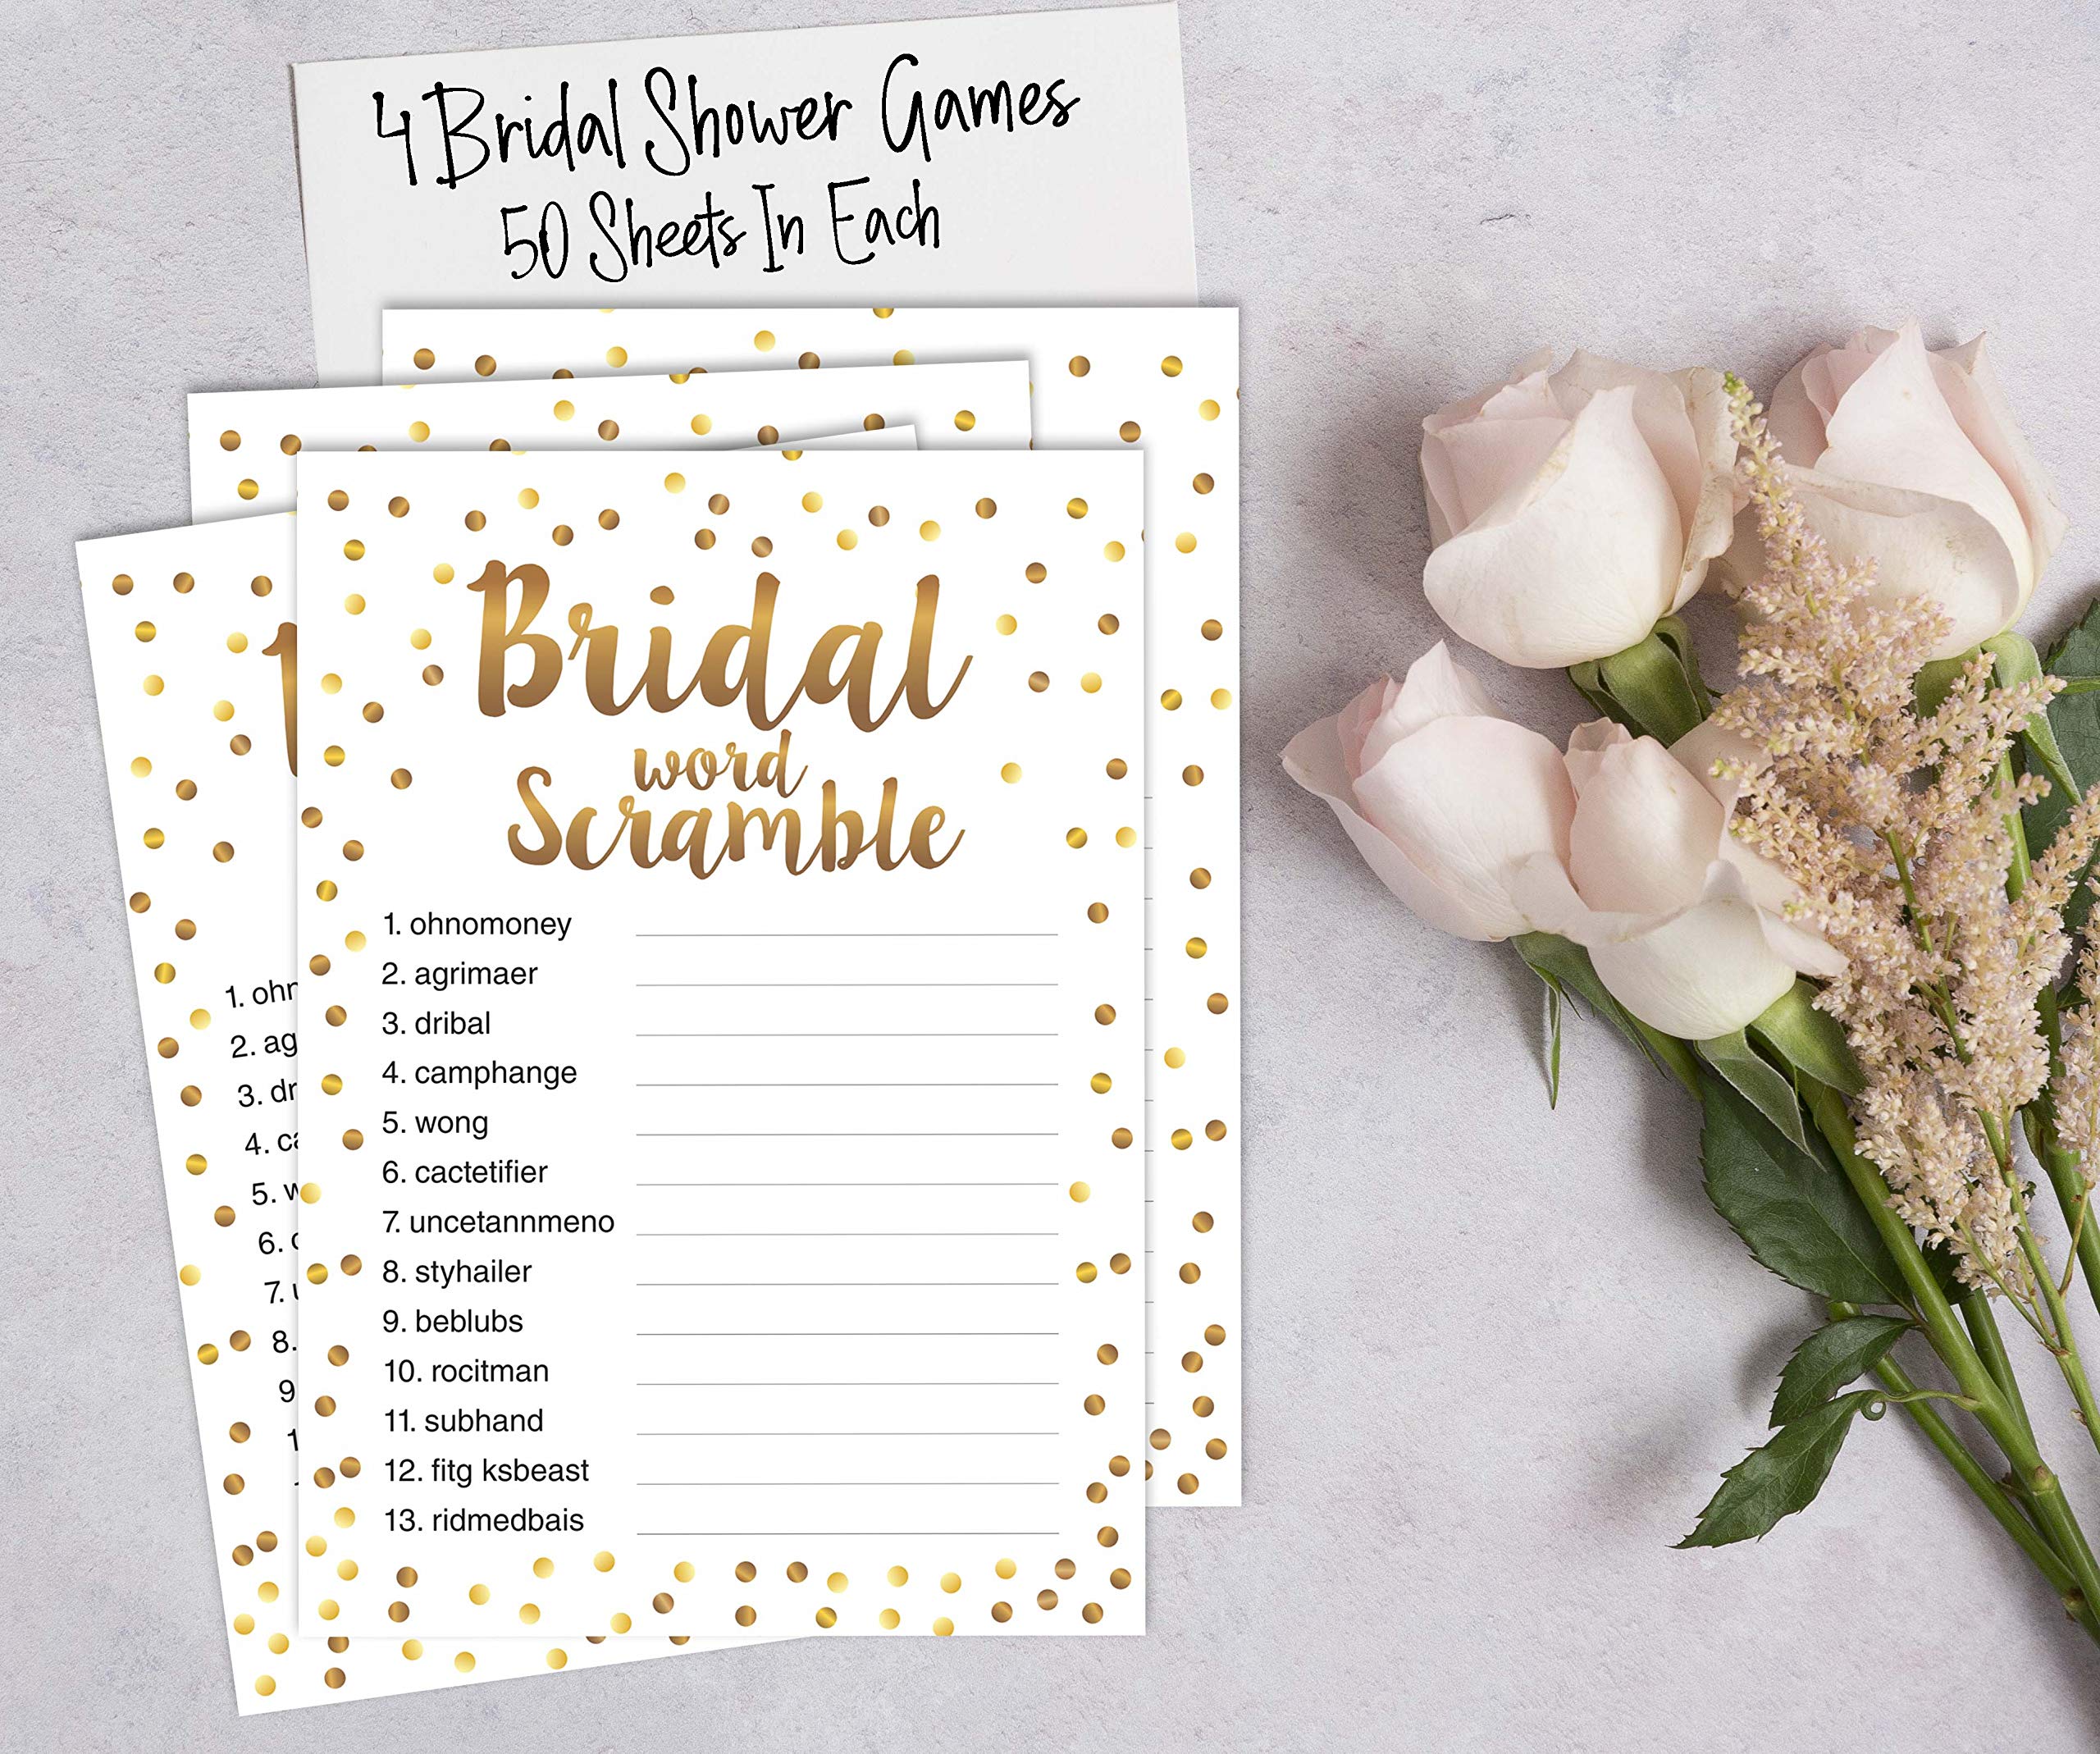 4 Bridal Shower Games
50 Sheets In Each
Bridal
word
Scramble
1. ohnomoney
2. agrimaer
3. dribal
4. camphange
5. wong
6. cactetifier
7. uncetannmeno
8. styhailer
9. beblubs
10. rocitman
11. subhand
12. fitg ksbeast
13. ridmedbais
1. ohn
2. ag
3. dr
4. ca
5. w
6. c
7. u
8.
9
1